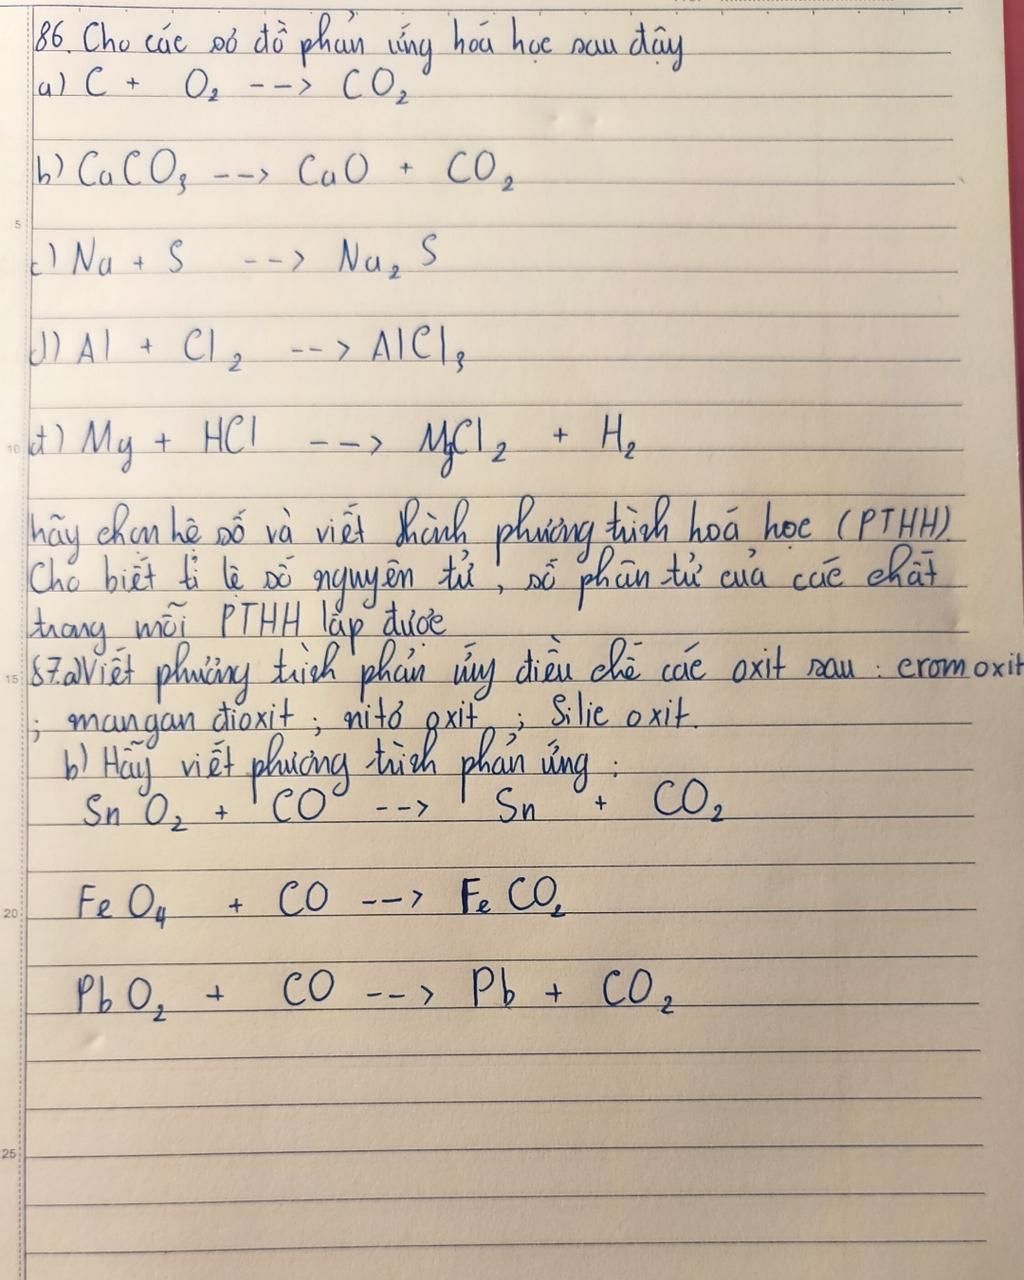 86. Cho các sơ đồ phản ứng hoá học sau đây
a) C + O₂ --> CO₂
b) CaCO₃ --> CaO + CO₂
5
c) Na + S --> Na₂S
d) Al + Cl₂ --> AlCl₃
10 đ) Mg + HCl --> MgCl₂ + H₂
hãy chọn hệ số và viết thành phương trình hoá học (PTHH)
Cho biết tỉ lệ số nguyên tử, số phân tử của các chất
trong mỗi PTHH lập được
15 87.a) Viết phương trình phản ứng điều chế các oxit sau : crom oxit
; mangan đioxit ; nitơ oxit ; Silic oxit.
b) Hãy viết phương trình phản ứng :
SnO₂ + CO --> Sn + CO₂
20 FeO₄ + CO --> Fe CO₂
PbO₂ + CO --> Pb + CO₂
25